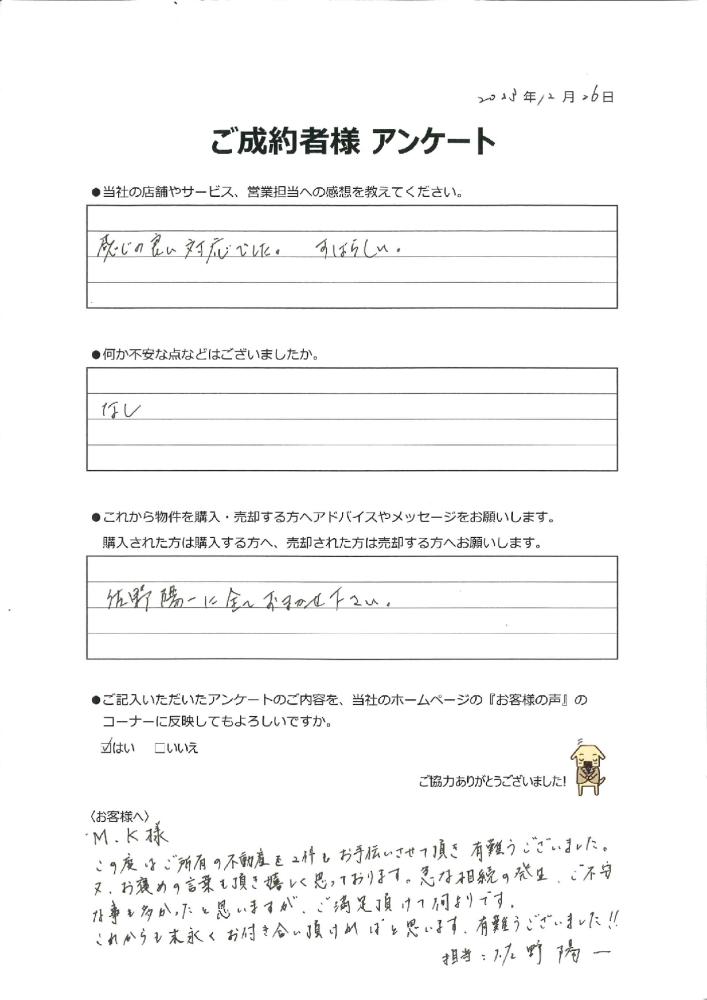 2023年12月26日
ご成約者様 アンケート
●当社の店舗やサービス、営業担当への感想を教えてください。
感じの良い対応でした。 すばらしい。
●何か不安な点などはございましたか。
なし
●これから物件を購入・売却する方へアドバイスやメッセージをお願いします。
購入された方は購入する方へ、売却された方は売却する方へお願いします。
佐野陽一に全ておまかせ下さい。
●ご記入いただいたアンケートのご内容を、当社のホームページの『お客様の声』の
コーナーに反映してもよろしいですか。
☑はい □いいえ
ご協力ありがとうございました!
〈お客様へ〉
M.K様
この度はご所有の不動産を2件もお手伝いさせて頂き有難うございました。
又、お褒めの言葉も頂き嬉しく思っております。急な相続の発生、ご不安
な事も多かったと思いますが、ご満足頂けて何よりです。
これからも末永くお付き合い頂ければと思います。有難うございました!!
担当:佐野陽一